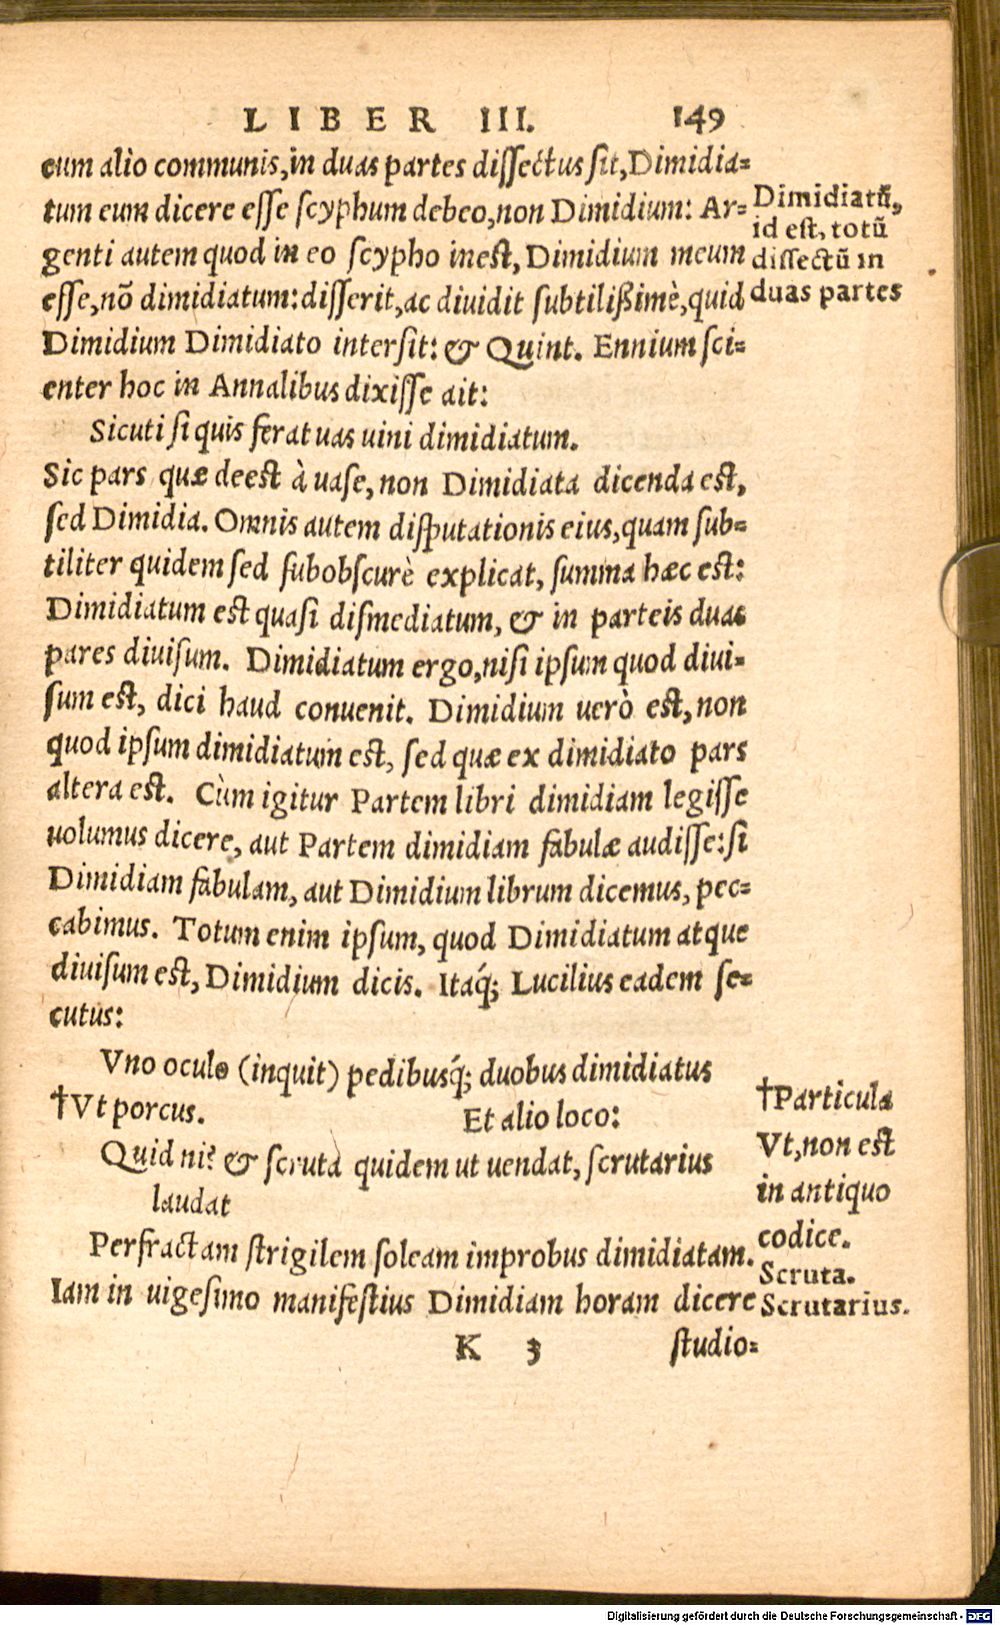 LIBER III. 149
cum alio communis, in duas partes dissectus sit, Dimidia=
tum eum dicere esse scyphum debeo, non Dimidium: Ar=
genti autem quod in eo scypho inest, Dimidium meum
esse, nō dimidiatum: disserit, ac diuidit subtilißimè, quid
Dimidium Dimidiato intersit: & Quint. Ennium sci=
enter hoc in Annalibus dixisse ait:
Sicuti si quis ferat uas uini dimidiatum.
Sic pars quæ deest à uase, non Dimidiata dicenda est,
sed Dimidia. Omnis autem disputationis eius, quam sub=
tiliter quidem sed subobscurè explicat, summa hæc est:
Dimidiatum est quasi dismediatum, & in parteis duas
pares diuisum. Dimidiatum ergo, nisi ipsum quod diui=
sum est, dici haud conuenit. Dimidium uerò est, non
quod ipsum dimidiatum est, sed quæ ex dimidiato pars
altera est. Cùm igitur Partem libri dimidiam legisse
uolumus dicere, aut Partem dimidiam fabulæ audisse: si
Dimidiam fabulam, aut Dimidium librum dicemus, pec=
cabimus. Totum enim ipsum, quod Dimidiatum atque
diuisum est, Dimidium dicis. Itaq́; Lucilius eadem se=
cutus:
Vno oculo (inquit) pedibusq́; duobus dimidiatus
†Vt porcus. Et alio loco:
Quid ni? & scruta quidem ut uendat, scrutarius
laudat
Perfractam strigilem soleam improbus dimidiatam.
Iam in uigesimo manifestius Dimidiam horam dicere
K 3 studio=
Dimidiatū,
id est, totū
dissectū in
duas partes
†Particula
Vt, non est
in antiquo
codice.
Scruta.
Scrutarius.
Digitalisierung gefördert durch die Deutsche Forschungsgemeinschaft - DFG